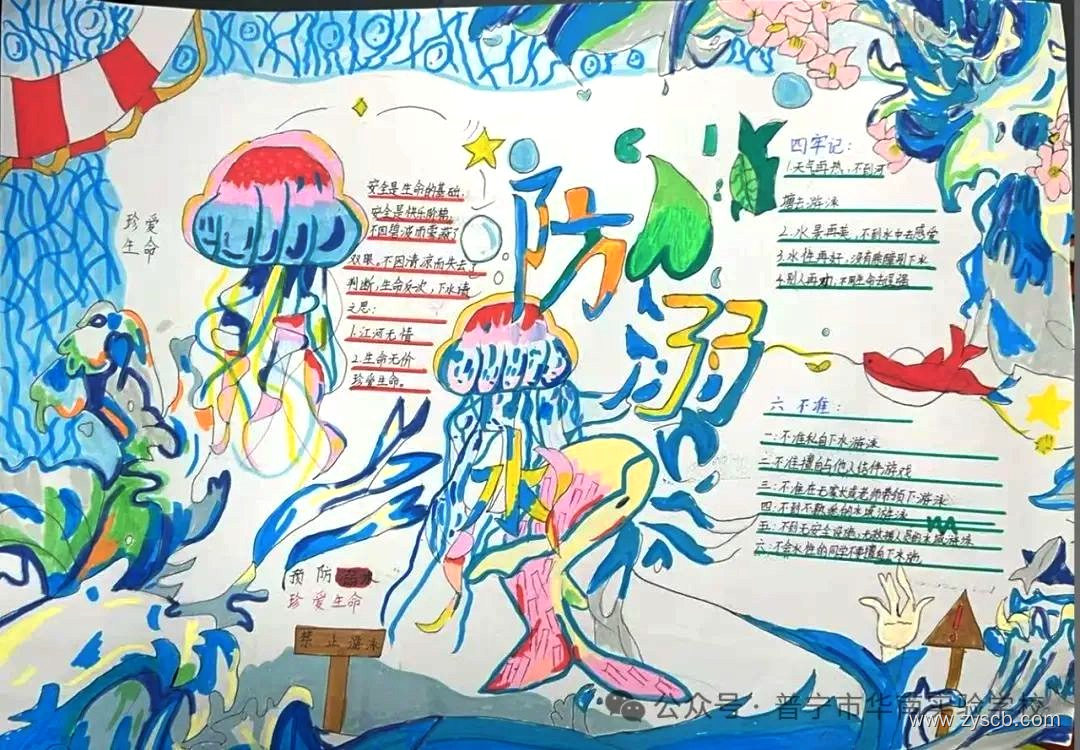 珍爱
生命
安全是生命的基础,
安全是快乐阶梯,
不因碧波而蒙蔽了
双眼,不因清凉而失去了
判断,生命友次,下水请
之思:
1.江河无情
2.生命无价
珍爱生命。
防
溺
水
四牢记:
1.天气再热,不到河
塘去游泳
2.水景再美,不到水中去感受
3.水性再好,没有熊瞳别下水
4.别人再劝,不用生命去逞强
六不准:
一:不准私自下水游泳
二:不准擅自与他人结伴游戏
三:不准在无家长或老师带的下游泳
四:不到不熟悉的水域游泳
五:不到无安全设施,无救援人员的水域游泳
六:不会水性的同学不要擅自下水施
预防
珍爱生命
禁止游泳
!
公众号·普宁市华南实验学校
www.zyscb.com